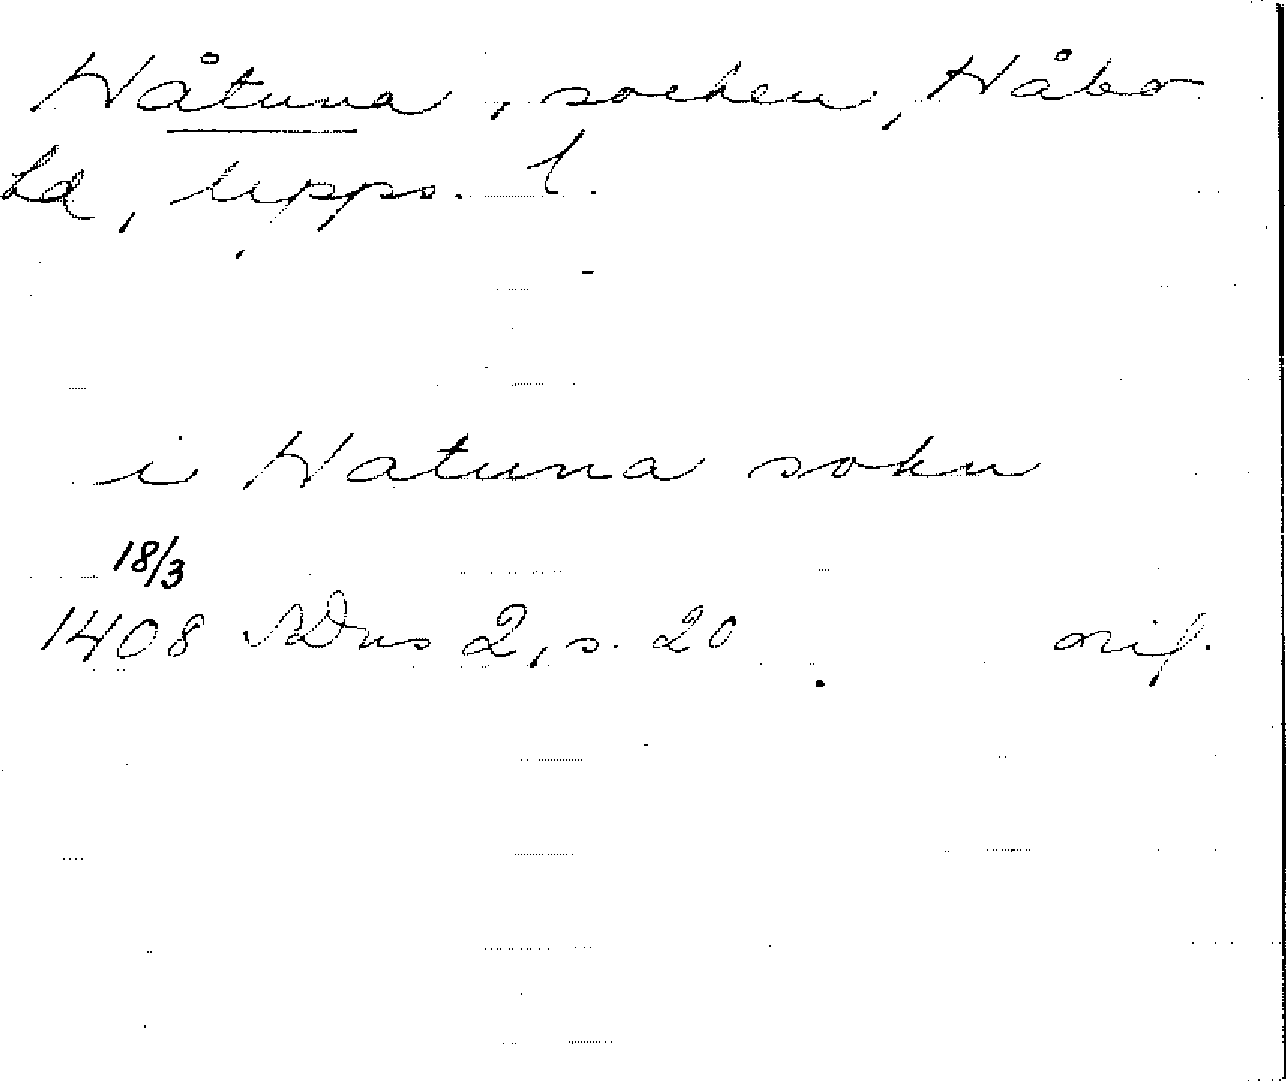 Håtuna, socken, Håbo
hd, Upps. l.
i Hatuna sokn
18/3
1408 SDns 2, s. 20 orig.